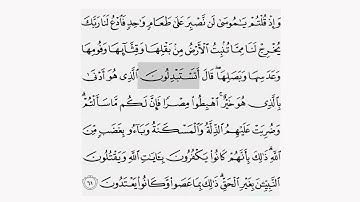 وَإِذْ قُلْتُمْ يَـٰمُوسَىٰ لَن نَّصْبِرَ عَلَىٰ طَعَامٍ وَٰحِدٍ فَٱدْعُ لَنَا رَبَّكَ
يُخْرِجْ لَنَا مِمَّا تُنۢبِتُ ٱلْأَرْضُ مِنۢ بَقْلِهَا وَقِثَّآئِهَا وَفُومِهَا
وَعَدَسِهَا وَبَصَلِهَا ۖ قَالَ أَتَسْتَبْدِلُونَ ٱلَّذِى هُوَ أَدْنَىٰ
بِٱلَّذِى هُوَ خَيْرٌ ۚ ٱهْبِطُوا۟ مِصْرًا فَإِنَّ لَكُم مَّا سَأَلْتُمْ ۗ
وَضُرِبَتْ عَلَيْهِمُ ٱلذِّلَّةُ وَٱلْمَسْكَنَةُ وَبَآءُو بِغَضَبٍ مِّنَ
ٱللَّهِ ۗ ذَٰلِكَ بِأَنَّهُمْ كَانُوا۟ يَكْفُرُونَ بِـَٔايَـٰتِ ٱللَّهِ وَيَقْتُلُونَ
ٱلنَّبِيِّـۧنَ بِغَيْرِ ٱلْحَقِّ ۗ ذَٰلِكَ بِمَا عَصَوا۟ وَّكَانُوا۟ يَعْتَدُونَ ٦١